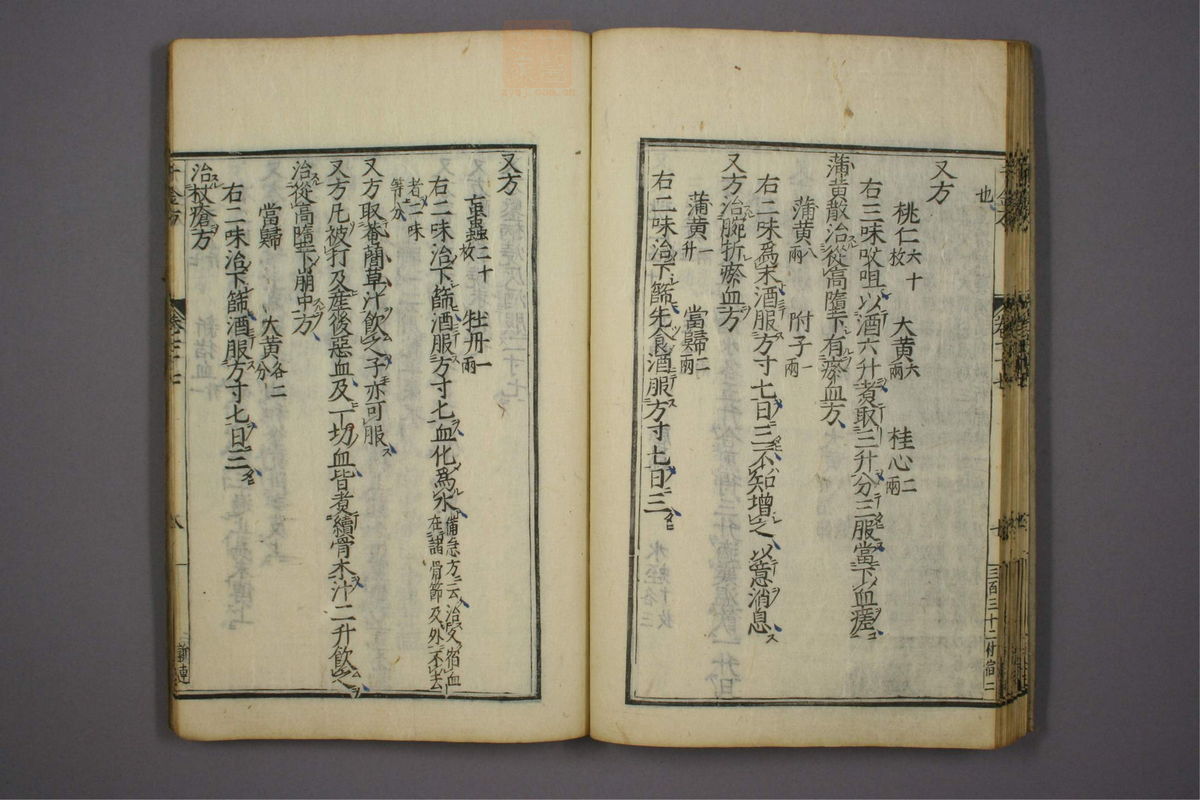 也
又方
桃仁六十枚 大黄六兩 桂心二兩
右三味㕮咀以酒六升煮取三升分三服當下血瘥
蒲黄散治從高墮下有瘀血方
蒲黄八兩 附子一兩
右二味爲末酒服方寸匕日三不知增之以意消息
又方治腕折瘀血方
蒲黄一升 當歸二兩
右二味治下篩先食酒服方寸匕日三
三百三十二
又方
䖟蟲二十枚 牡丹一兩
右二味治下篩酒服方寸匕血化爲水備急方云治久宿血在諸骨節及外不去
者二味等分
又方取菴䕡草汁飲之子亦可服
又方凡被打及産後惡血及一切血皆煮續骨木汁二升飲之
治從高墮下崩中方
當歸 大黄各二分
右二味治下篩酒服方寸匕日三
治杖瘡方
千金方